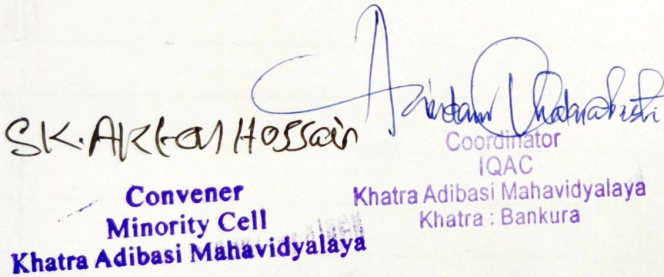 SK. Aktar Hossain
Convener
Minority Cell
Khatra Adibasi Mahavidyalaya
Arindam Chakrabarti
Coordinator
IQAC
Khatra Adibasi Mahavidyalaya
Khatra : Bankura